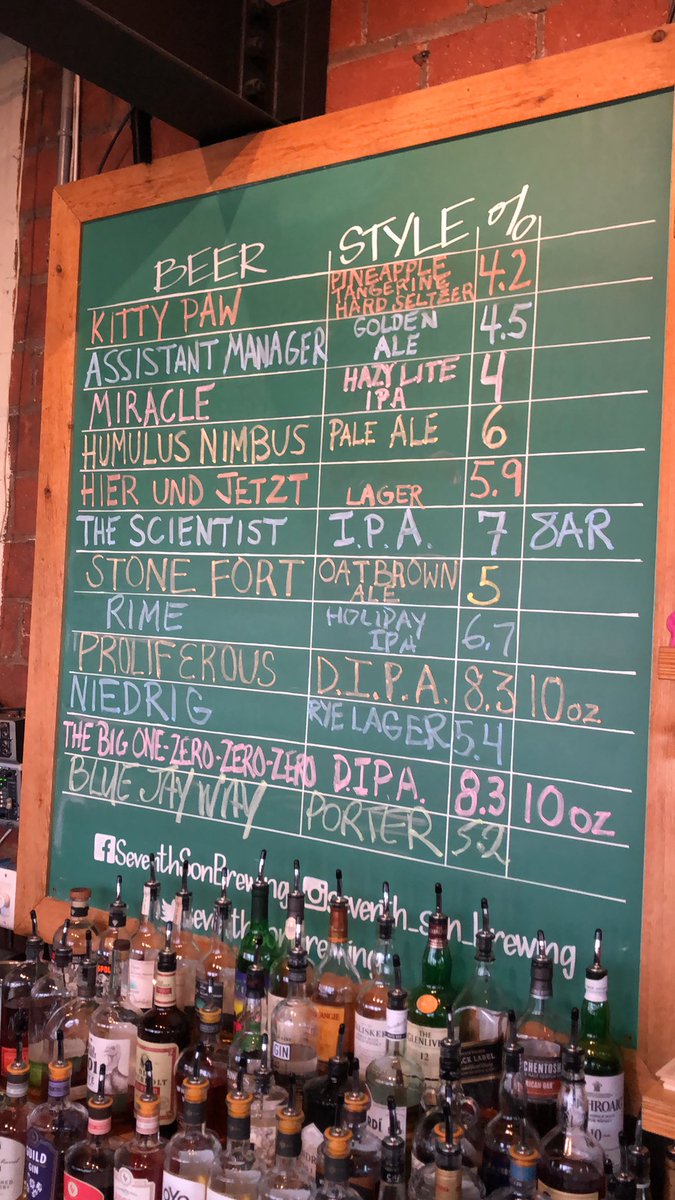 BEER STYLE %
KITTY PAW PINEAPPLE TANGERINE HARD SELTZER 4.2
ASSISTANT MANAGER GOLDEN ALE 4.5
MIRACLE HAZY LITE IPA 4
HUMULUS NIMBUS PALE ALE 6
HIER UND JETZT LAGER 5.9
THE SCIENTIST I.P.A. 7 8AR
STONE FORT OAT BROWN ALE 5
RIME HOLIDAY IPA 6.7
PROLIFEROUS D.I.P.A. 8.3 10oz
NIEDRIG RYE LAGER 5.4
THE BIG ONE-ZERO-ZERO-ZERO D.I.P.A. 8.3 10oz
BLUE JAY WAY PORTER 5.2
SeventhSonBrewing seventh_son_brewing
seventhsonbrewing
GIN
THE GLENLIVET
12
BLACK LABEL
10
GIN